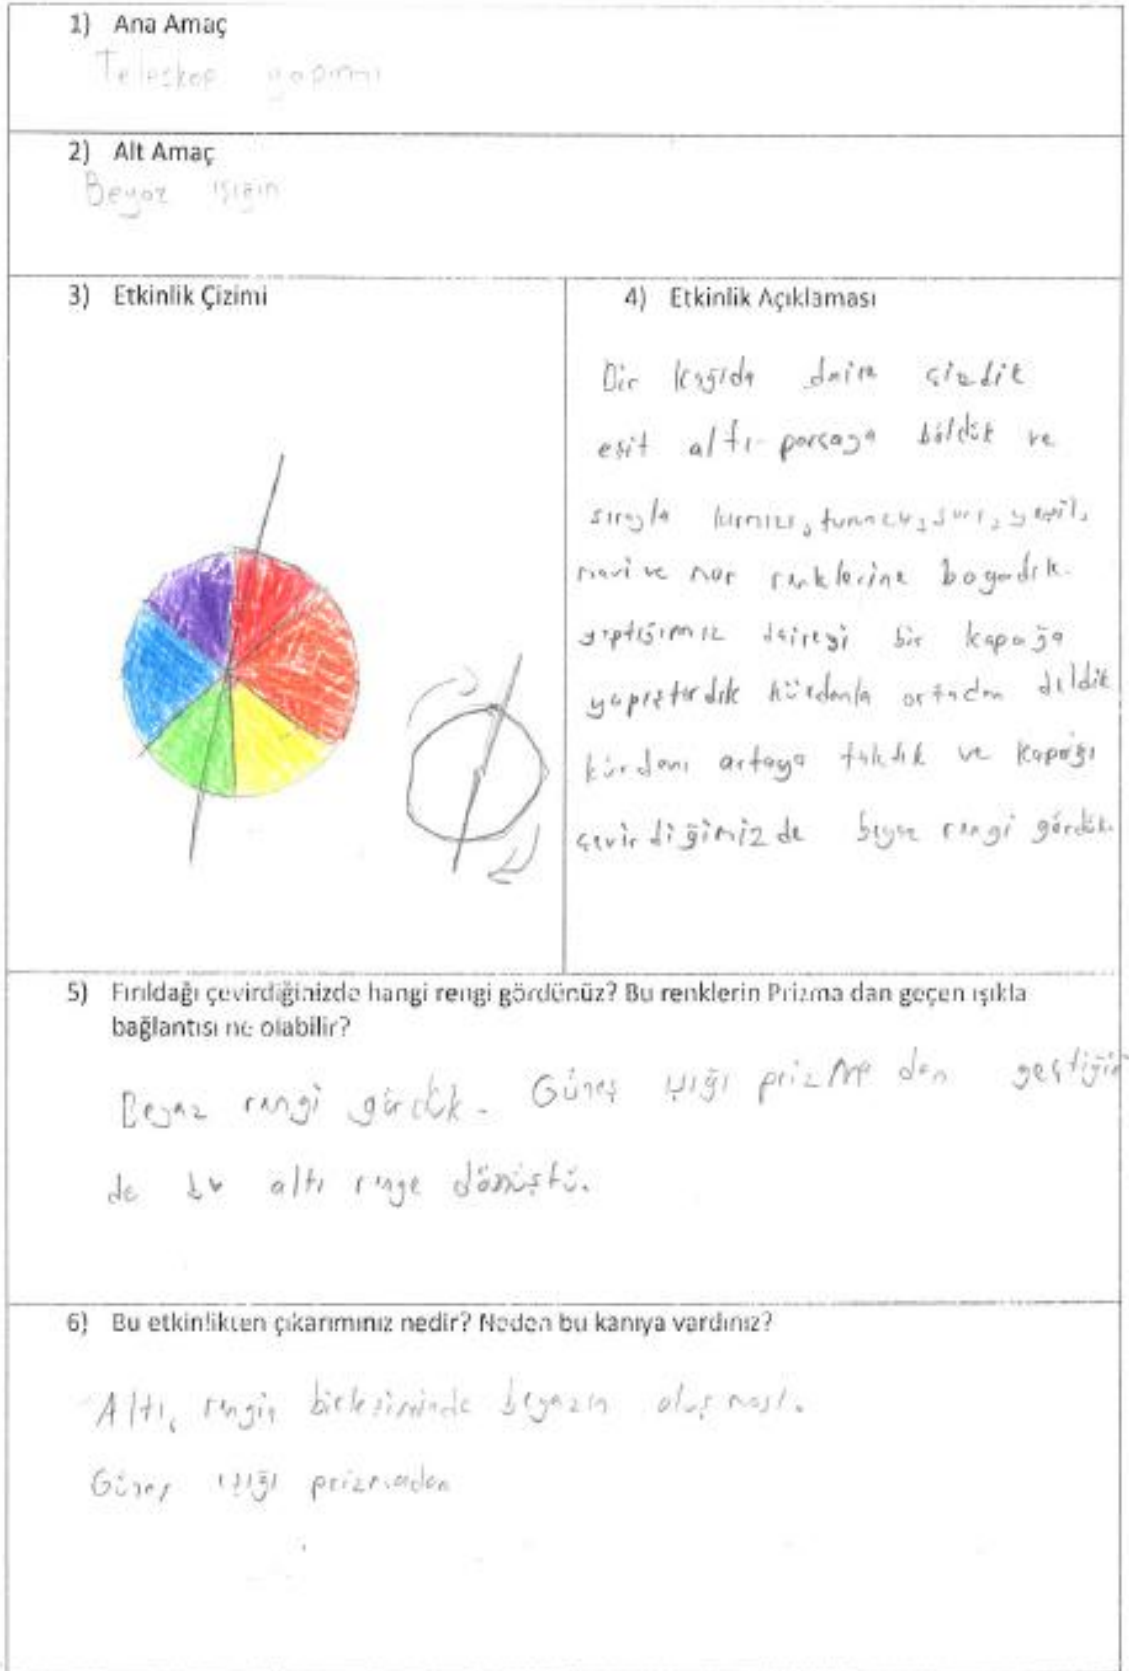 1) Ana Amaç
Teleskop yapımı
2) Alt Amaç
Beyaz ışığın
3) Etkinlik Çizimi
4) Etkinlik Açıklaması
Bir kağıda daire çizdik
eşit altı parçaya böldük ve
sırayla kırmızı, turuncu, sarı, yeşil,
mavi ve mor renklerine boyadık.
yaptığımız daireyi bir kapağa
yapıştırdık kürdanla ortadan deldik
kürdanı ortaya taktık ve kapağı
çevirdiğimizde beyaz rengi gördük.
5) Fırıldağı çevirdiğinizde hangi rengi gördünüz? Bu renklerin Prizma dan geçen ışıkla
bağlantısı ne olabilir?
Beyaz rengi gördük. Güneş ışığı prizma dan geçtiğin
de bu altı renge dönüştü.
6) Bu etkinlikten çıkarımınız nedir? Neden bu kanıya vardınız?
Altı rengin birleşiminde beyazın oluşması.
Güneş ışığı prizmadan